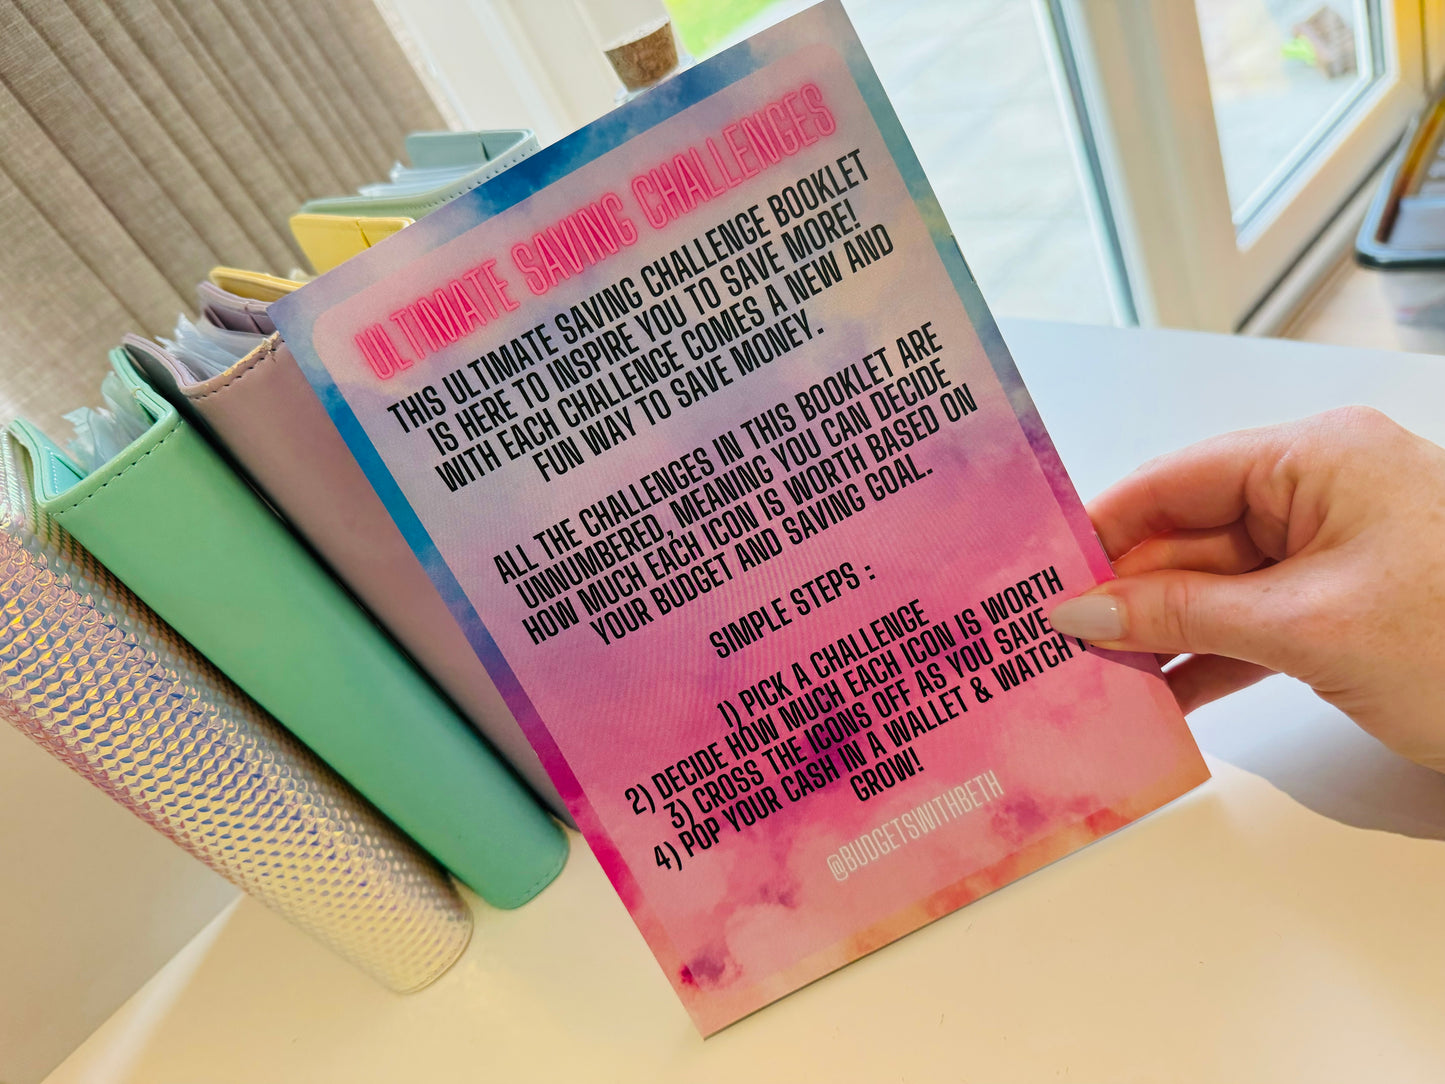 ULTIMATE SAVING CHALLENGES
THIS ULTIMATE SAVING CHALLENGE BOOKLET
IS HERE TO INSPIRE YOU TO SAVE MORE!
WITH EACH CHALLENGE COMES A NEW AND
FUN WAY TO SAVE MONEY.
ALL THE CHALLENGES IN THIS BOOKLET ARE
UNNUMBERED, MEANING YOU CAN DECIDE
HOW MUCH EACH ICON IS WORTH BASED ON
YOUR BUDGET AND SAVING GOAL.
SIMPLE STEPS :
1) PICK A CHALLENGE
2) DECIDE HOW MUCH EACH ICON IS WORTH
3) CROSS THE ICONS OFF AS YOU SAVE
4) POP YOUR CASH IN A WALLET & WATCH
GROW!
@BUDGETSWITHBETH